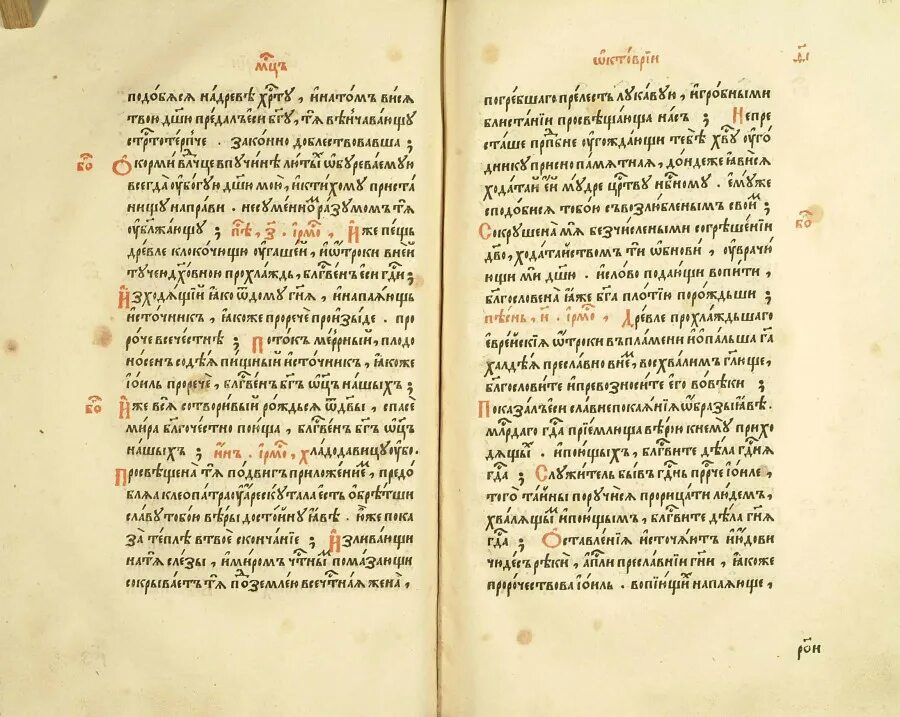 мц҃ъ
подобѧсѧ на древѣ хрⷭ҇ту, и҆ на томъ висѧ
твою дш҃ю предалъ є҆си бг҃у, тѧ вѣнчавающу
стрⷭ҇тотерпче. законно доблествовавша;
бо҃
Ѻ҆корми влⷣчце в пучинѣ лютых ѡ҆буреваемую
всегда ѹ҆богую дш҃ю мою, и҆ к тихому приста
нищу направи. несуменным разумомъ тѧ
ѹ҆блажающу; пѣ, з҃. і҆рмо, И҆же пещь
древле клокочющи ѹ҆гашей, и҆ ѻ҆троки в ней
тучею дх҃овною прохлаждь, блгⷭ҇венъ є҆си гдⷭ҇и;
И҆зходѧщїй ꙗ҆ко ѿ дому гнѧ, и҆ напаѧющь
и҆сточникъ, ꙗ҆коже прорече про и҆зыде. про
роче всечестнѣ; Потокъ мѵрный, плодо
носенъ содѣѧ пищный и҆сточникъ, ꙗ҆коже
і҆ѡиль прорече, блгⷭ҇венъ бг҃ъ ѻ҆ц҃ъ нашыхъ;
бо҃
И҆же всѧ сотворивый рождьсѧ ѿ дв҃ы, спасе
мира блгⷭ҇очестно поища, блгⷭ҇венъ бг҃ъ ѻ҆ц҃ъ
нашыхъ; и҆н. і҆рмо, хладодавицу ѹ҆бо.
Просвѣщена тѧ подвиг приложением, предо
блаѧ клеопатра ѹ҆аре скутала єсть ѻ҆брѣтши
славу тобою вѣры достойну ꙗ҆вѣ. и҆же пока
за теплѣ в твое скончанїе; И҆зливающи
на тѧ слезы, и҆ миромъ чтⷭ҇ным помазающи
сокрываетъ тѧ под землею всечтⷭ҇наѧ жена,
ѻ҆ктоврїи
д҃і
погребшаго прелесть лукавую, и҆ гробными
блистанїи просвѣщающа насъ; Непре
сташе прпⷣбне ѹ҆гождающи тебѣ хв҃у ѹ҆го
днику приснопамѧтнаѧ, дондеже ꙗ҆висѧ
ходатай є҆й мудре црⷭ҇тву нбⷭ҇ному. є҆муже
сподобисѧ тобою с возлюбленым своим;
бо҃
Сокрушена мѧ безчислеными согрѣшенїи
дв҃о, ходатайством ти ѡ҆бнови, ѹ҆врачю
ющи ми дш҃ю. и҆ слово подающи вопити,
благословена ꙗ҆же бг҃а плотїю порождьши;
пѣснь, и҃. і҆рмо, Древле прохлаждьшаго
є҆врейскїѧ ѻ҆троки в пламени и҆ попальша га
халдѣѧ преславно в нем, восхвалим глюще,
блгⷭ҇ословите и҆ превозносите є҆го во вѣки;
Показалъ є҆си славне покаѧнїѧ ѻ҆бразы ꙗ҆вѣ.
млрⷣдаго гдⷭ҇а прїемлюща вѣрою к нему прихо
дѧщых. и҆ поющых, блгⷭ҇вите дѣла гднⷭ҇ѧ
гдⷭ҇а; Служитель бывъ гднⷭ҇ь прⷪ҇рче і҆ѡиле,
того тайны поручисѧ прорицати людемъ,
хвалѧщым и҆ поющымъ, блгⷭ҇вите дѣла гнⷭ҇ѧ
гдⷭ҇а; Ѻ҆ставленїѧ и҆сточѧтъ и҆ водови
чюдесъ рѣки, апⷭ҇ли преславнїи гнⷭ҇и, ꙗ҆коже
пророчествова і҆ѡиль. вопїющым напаѧюще,
рⷪ҇ои